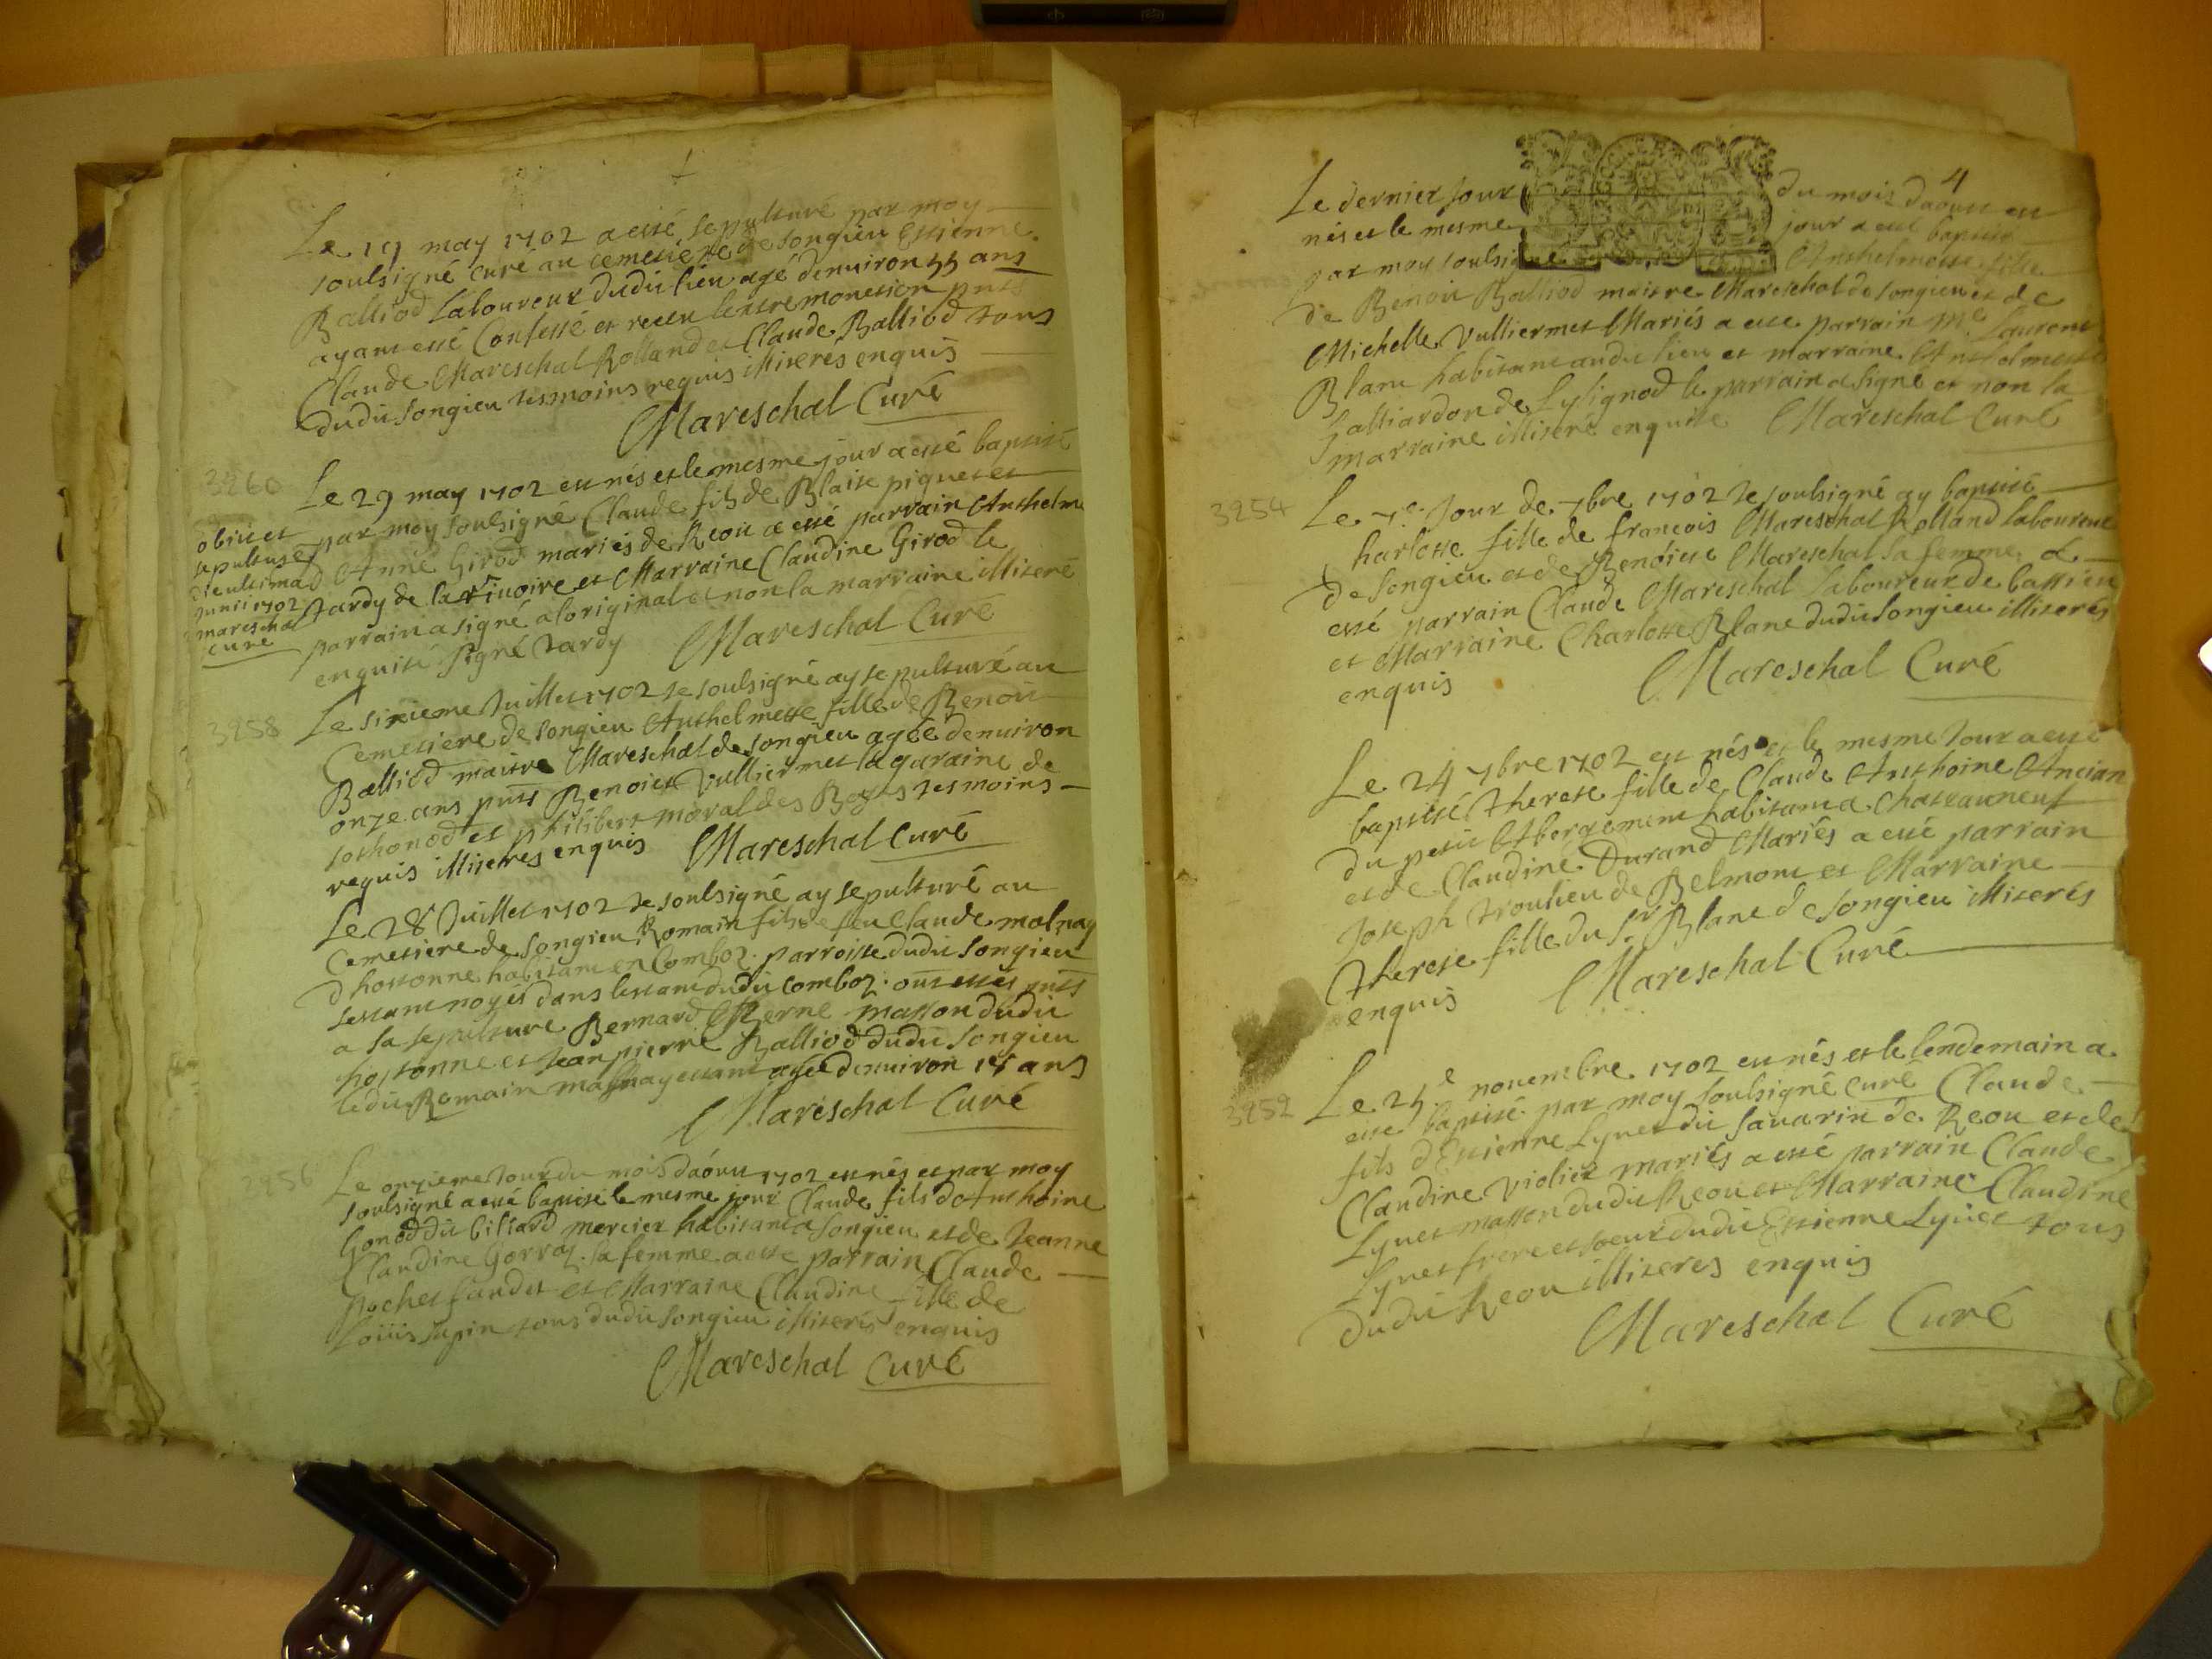 Le 19 may 1702 a esté sepulturé par moy
soulsigné curé au cemetiere de songieu Estienne
Balliod laboureur dudit lieu agé denuiron 55 ans
ayant esté Confessé et receu lextremonction pnts
Claude Mareschal Rolland et Claude Balliod tous
dudit songieu tesmoins requis illiterés enquis
Mareschal Curé
3260
Le 29 may 1702 est nés et le mesme jour a esté baptisé
par moy soulsigné Claude fils de Blaise piquet et
d Anne Girod mariés de Reou a esté parrain Anthelme
tardy de la riuoire et Marraine Claudine Girod le
parrain a signé a loriginal et non la marraine illiteré
enquise signé tardy Mareschal Curé
obiit et
sepultus
die ultima
Junii 1702
mareschal
curé
3258
Le sixieme Juillet 1702 Je soulsigné ay sepulturé au
Cemetiere de songieu Anthelmette fille de Benoit
Balliod maitre Mareschal de songieu agée denuiron
onze ans pnts Benoitte Vulliermet la garaine de
sothonod et philibert moral des Boges tesmoins
requis illiterés enquis Mareschal Curé
Le 28 Juillet 1702 Je soulsigné ay sepulturé au
Cemetiere de songieu Romain fils de feu Claude molnay
d hostonne habitant en Comboz parroisse dudit songieu
sestant noyés dans lestant dudit comboz ont estés pnts
a sa sepulture Bernard Berne masson dudit
hostonne et Jean pierre Balliod dudit songieu
ledit Romain molnay estant agé denuiron 15 ans
Mareschal Curé
3256
Le onzieme Jour du mois daóust 1702 est nés et par moy
soulsigné a esté baptisé le mesme jour Claude fils d Anthoine
Gonod dit biliard mercier habitant a songieu et de Jeanne
Claudine Gorraz sa femme a esté parrain Claude
pochet fandet et Marraine Claudine fille de
Loüis supin tous dudit songieu illiterés enquis
Mareschal Curé
4
Le dernier Jour du mois daoust est
nés et le mesme jour a esté baptisé
par moy soulsigné Anthelmette fille
de Benoit Balliod maitre Mareschal de songieu et de
Michelle Vulliermet Mariés a esté parrain Me Laurent
Blanc habitant audit lieu et marraine Anthelmette
Jalliardon de Lylignod le parrain a signé et non la
marraine illiteré enquise Mareschal Curé
3254
Le 7e Jour de 7bre 1702 Je soulsigné ay baptisé
Charlotte fille de francois Mareschal Rolland laboureur
de songieu et de Benoitte Mareschal sa femme a
esté parrain Claude Mareschal laboureur de bassieu
et Marraine Charlotte Blanc dudit songieu illiterés
enquis Mareschal Curé
Le 24 7bre 1702 est nés et le mesme Jour a esté
baptisé therese fille de Claude Anthoine Ancian
du petit Abergement habitant a Chateauneuf
et de Claudine Durand Mariés a esté parrain
Joseph trouheu de Belmont et Marraine
therese fille du sr Blanc de songieu illiterés
enquis Mareschal Curé
3252
Le 25e nouembre 1702 est nés et le lendemain a
esté baptisé par moy soulsigné curé Claude
fils d Estienne Lynet dit sauarin de Reou et de
Claudine Violier mariés a esté parrain Claude
Lynet masson dudit Reou et Marraine Claudine
Lynet frere et soeur dudit Estienne Lynet tous
dudit Reou illiteres enquis
Mareschal Curé